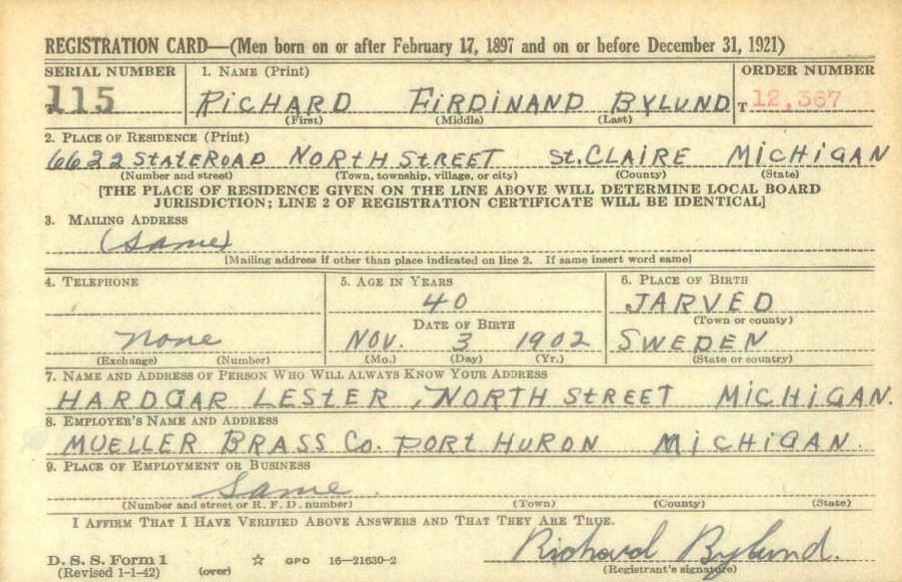 REGISTRATION CARD—(Men born on or after February 17, 1897 and on or before December 31, 1921)
SERIAL NUMBER 1. NAME (Print) ORDER NUMBER
T 115 RICHARD FIRDINAND BYLUND T 12,367
(First) (Middle) (Last)
2. PLACE OF RESIDENCE (Print)
6632 STATEROAD NORTH STREET St. CLAIRE MICHIGAN
(Number and street) (Town, township, village, or city) (County) (State)
[THE PLACE OF RESIDENCE GIVEN ON THE LINE ABOVE WILL DETERMINE LOCAL BOARD
JURISDICTION; LINE 2 OF REGISTRATION CERTIFICATE WILL BE IDENTICAL]
3. MAILING ADDRESS
(same)
[Mailing address if other than place indicated on line 2. If same insert word same]
4. TELEPHONE 5. AGE IN YEARS 6. PLACE OF BIRTH
40 JARVED
DATE OF BIRTH (Town or county)
None NOV. 3 1902 SWEDEN
(Exchange) (Number) (Mo.) (Day) (Yr.) (State or country)
7. NAME AND ADDRESS OF PERSON WHO WILL ALWAYS KNOW YOUR ADDRESS
LESTER, NORTH STREET MICHIGAN.
8. EMPLOYER'S NAME AND ADDRESS
MUELLER BRASS Co. PORT HURON MICHIGAN.
9. PLACE OF EMPLOYMENT OR BUSINESS
Same.
(Number and street or R. F. D. number) (Town) (County) (State)
I AFFIRM THAT I HAVE VERIFIED ABOVE ANSWERS AND THAT THEY ARE TRUE.
Richard Bylund.
D. S. S. Form 1 ☆ GPO 16—21630-2
(Revised 1-1-42) (over) (Registrant's signature)